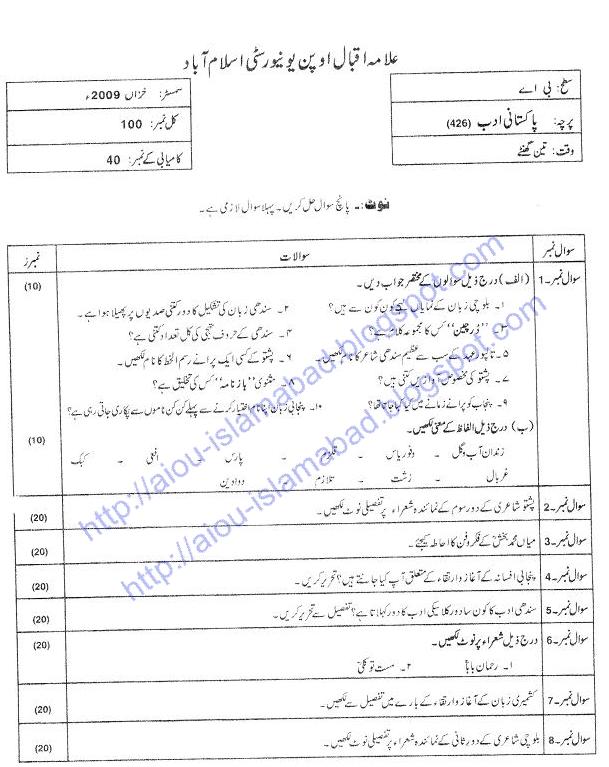 علامہ اقبال اوپن یونیورسٹی اسلام آباد
سطح: بی اے
پرچہ: پاکستانی ادب (426)
وقت: تین گھنٹے
سمسٹر: خزاں 2009ء
کل نمبر: 100
کامیابی کے نمبر: 40
نوٹ:۔ پانچ سوال حل کریں۔ پہلا سوال لازمی ہے۔
سوال نمبر سوالات نمبرز
سوال نمبر۔1 (الف) درج ذیل سوالوں کے مختصر جواب دیں۔ (10)
۱۔ بلوچی زبان کے نمایاں لہجے کون کون سے ہیں؟ ۲۔ سندھی زبان کی تشکیل کا دور کتنی صدیوں پر پھیلا ہوا ہے۔
۳۔ "درچین" کس کا مجموعہ کلام ہے؟ ۴۔ سندھی کے حروف تہجی کی کل تعداد کتنی ہے؟
۵۔ تالپور عہد کے سب سے عظیم سندھی شاعر کا نام لکھیں۔ ۶۔ پشتو کے کسی ایک پرانے رسم الخط کا نام لکھیں۔
۷۔ پشتو کی مخصوص آوازیں کتنی ہیں؟ ۸۔ مثنوی "باز نامہ" کس کی تخلیق ہے؟
۹۔ پنجاب کو پرانے زمانے میں کیا کہا جاتا تھا؟ ۱۰۔ پنجابی زبان اپنا نام اختیار کرنے سے پہلے کن کن ناموں سے پکاری جاتی رہی ہے؟
(ب) درج ذیل الفاظ کے معنی لکھیں۔ (10)
زندان آب و گل ۔ وفور یاس ۔ قلزم ۔ پارس ۔ افعی ۔ کبک
غربال ۔ زشت ۔ تلازم ۔ دوادین
سوال نمبر۔2 پشتو شاعری کے دور سوم کے نمائندہ شعراء پر تفصیلی نوٹ لکھیں۔ (20)
سوال نمبر۔3 میاں محمد بخش کے فکر و فن کا احاطہ کیجئے۔ (20)
سوال نمبر۔4 پنجابی افسانہ کے آغاز و ارتقاء کے متعلق آپ کیا جانتے ہیں؟ تحریر کریں۔ (20)
سوال نمبر۔5 سندھی ادب کا کون سا دور کلاسیکی ادب کا دور کہلاتا ہے؟ تفصیل سے تحریر کریں۔ (20)
سوال نمبر۔6 درج ذیل شعراء پر نوٹ لکھیں۔ (20)
۱۔ رحمان بابا ۲۔ مست توکلی
سوال نمبر۔7 کشمیری زبان کے آغاز و ارتقاء کے بارے میں تفصیل سے لکھیں۔ (20)
سوال نمبر۔8 بلوچی شاعری کے دور ثانی کے نمائندہ شعراء پر تفصیلی نوٹ لکھیں۔ (20)
http://aiou-islamabad.blogspot.com
http://aiou-islamabad.blogspot.com